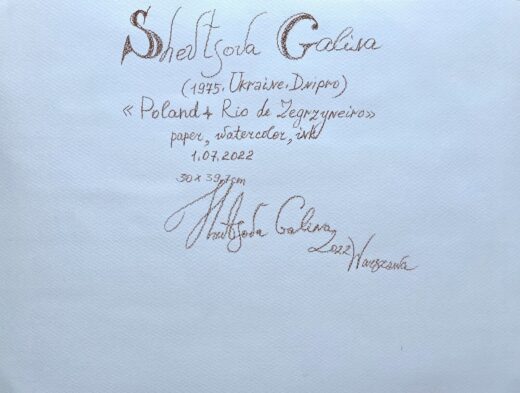 Shevtsova Galina
(1975, Ukraine, Dnipro)
« Poland 4 Rio de Zegrzyneiro»
paper, watercolor, ink
1.07.2022
30 x 39,7cm
Shevtsova Galina
2022 Warszawa